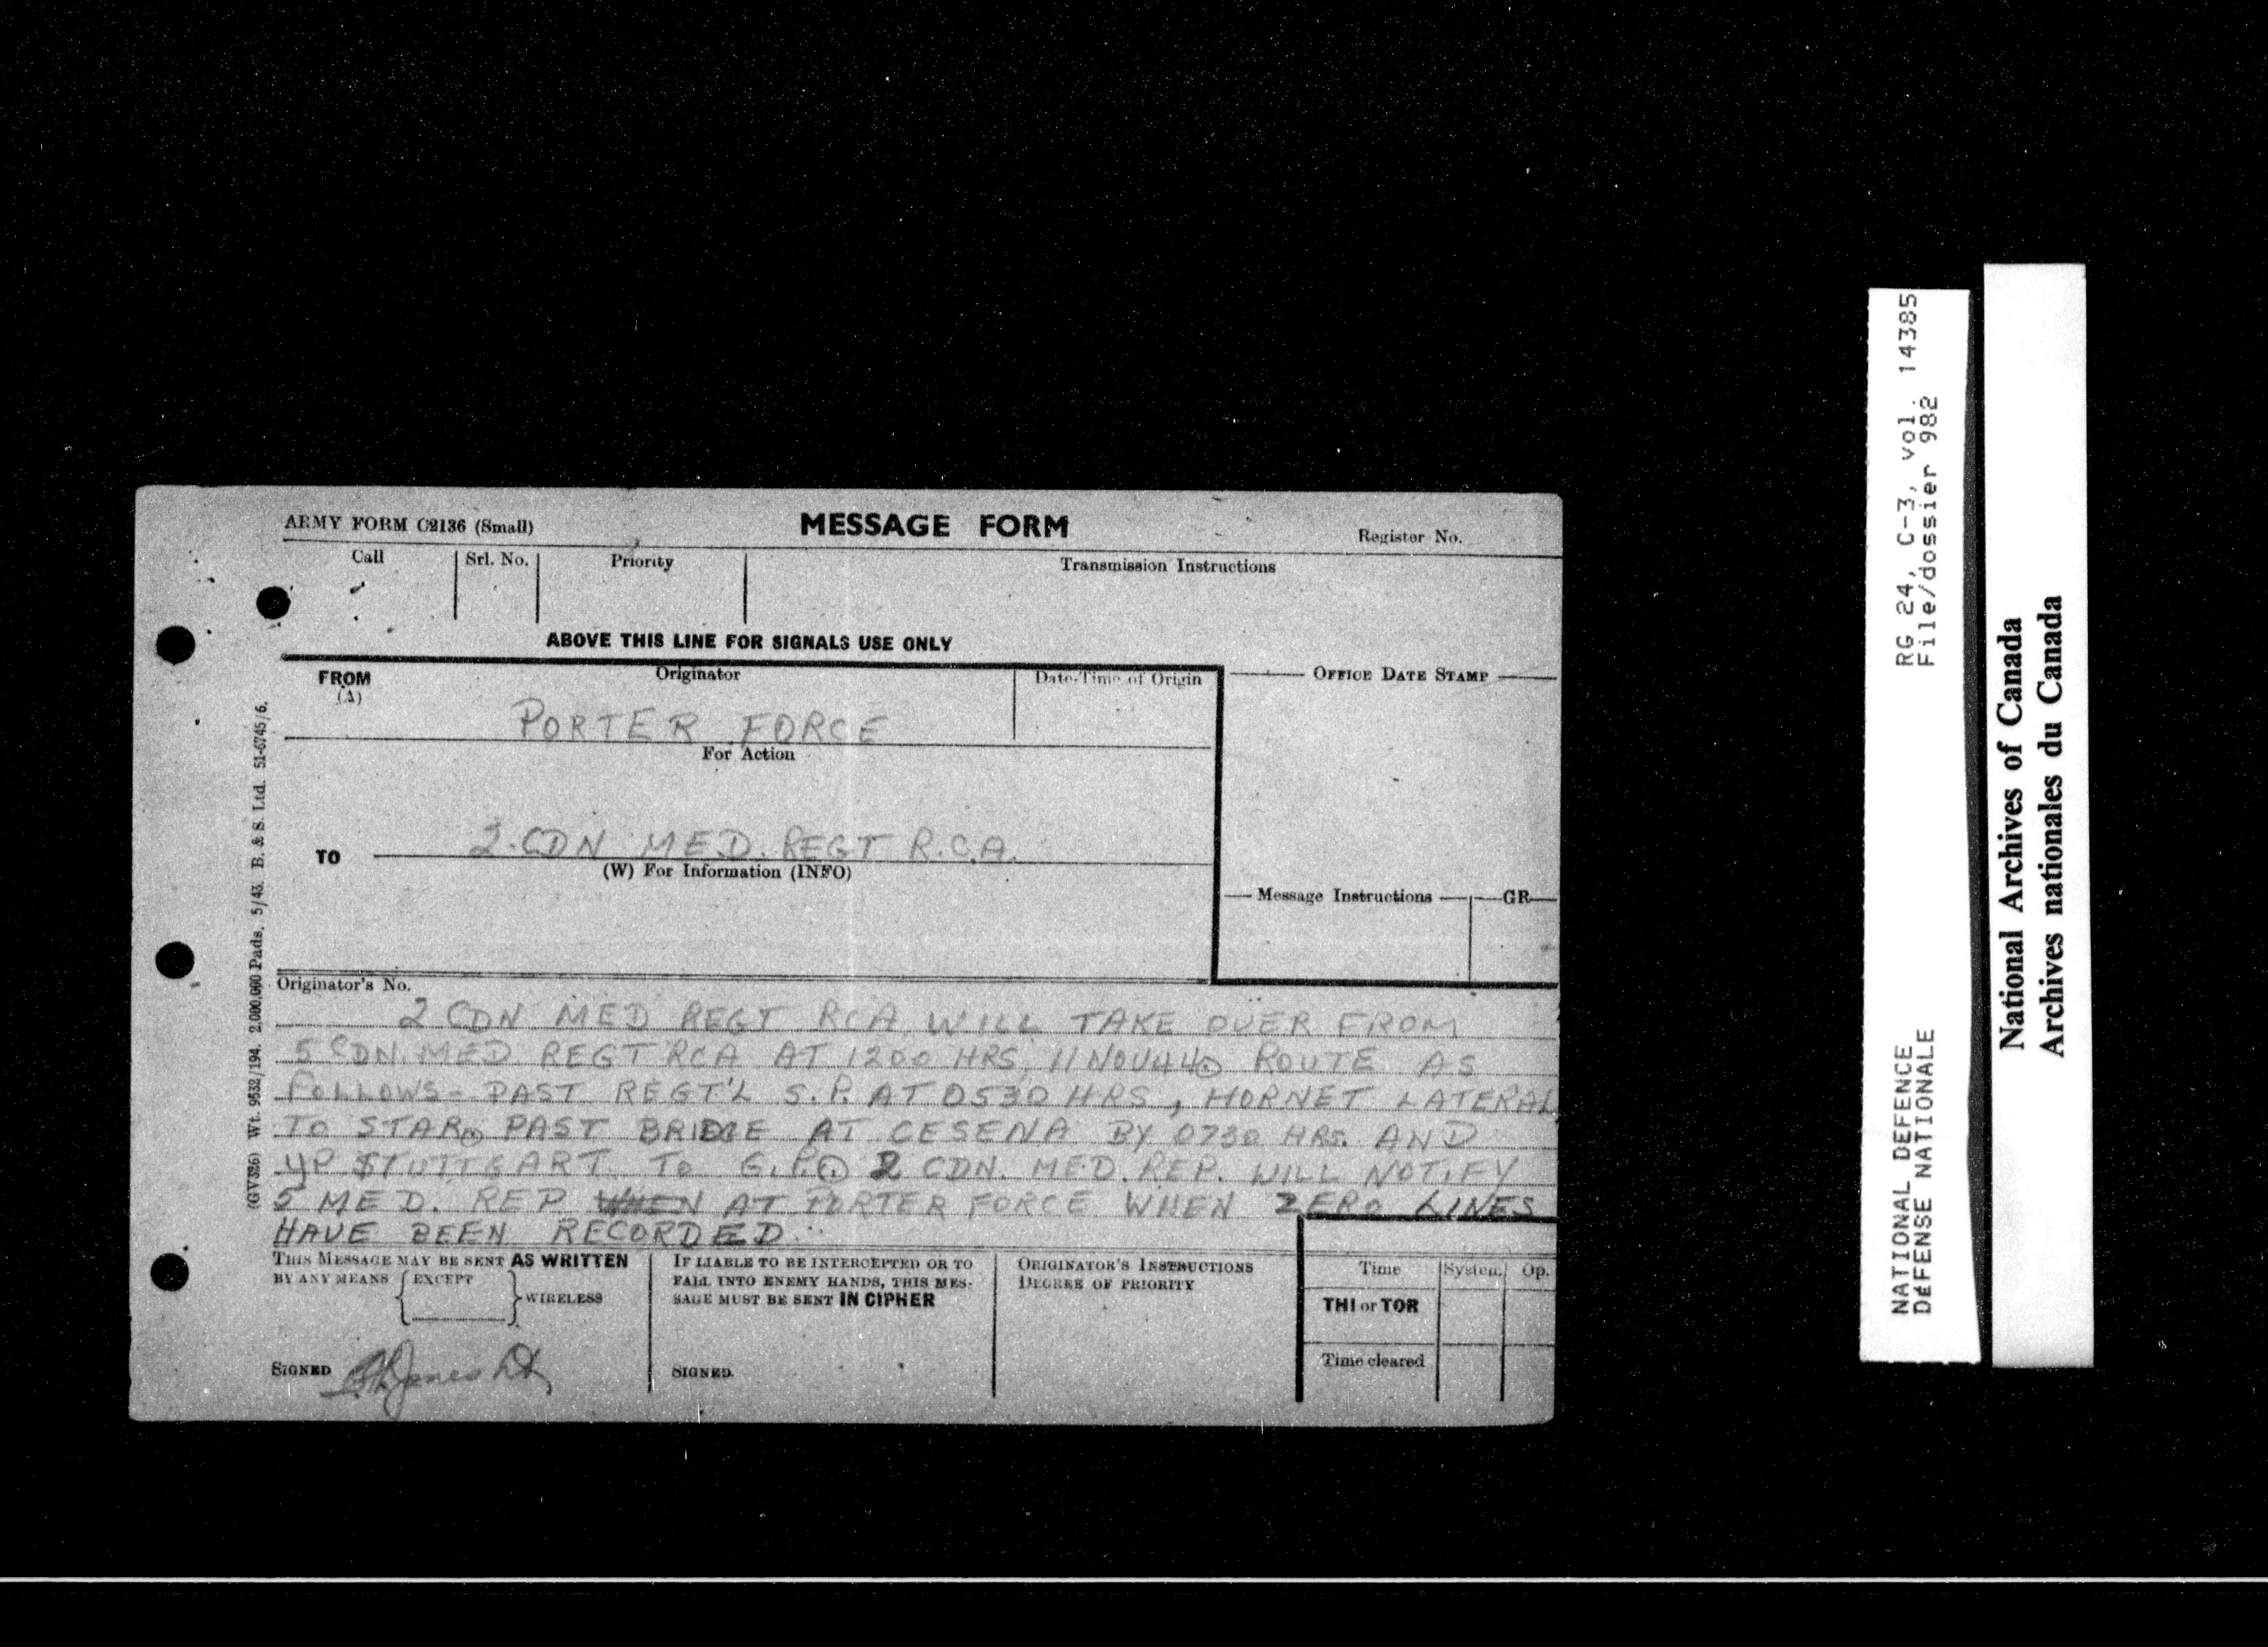 ARMY FORM C2136 (Small)
MESSAGE FORM
Register No.
Call
Srl. No.
Priority
Transmission Instructions
ABOVE THIS LINE FOR SIGNALS USE ONLY
FROM
(A)
Originator
Date-Time of Origin
OFFICE DATE STAMP
PORTER FORCE
For Action
TO
2 CDN MED. REGT R.C.A.
(W) For Information (INFO)
Message Instructions
GR
Originator's No.
2 CDN MED REGT RCA WILL TAKE OVER FROM
5 CDN MED REGT RCA AT 1200 HRS, 11 NOV 44⊙ ROUTE AS
FOLLOWS - PAST REGT'L S.P. AT 0530 HRS, HORNET LATERAL
TO STAR⊙ PAST BRIDGE AT CESENA BY 0730 HRS. AND
UP STUTTGART TO G.P.⊙ 2 CDN. MED. REP. WILL NOTIFY
5 MED. REP. WHEN AT PORTER FORCE WHEN ZERO LINES
HAVE BEEN RECORDED
THIS MESSAGE MAY BE SENT AS WRITTEN
BY ANY MEANS { EXCEPT } WIRELESS
SIGNED Jones Lt
IF LIABLE TO BE INTERCEPTED OR TO
FALL INTO ENEMY HANDS, THIS MES-
SAGE MUST BE SENT IN CIPHER
SIGNED.
ORIGINATOR'S INSTRUCTIONS
DEGREE OF PRIORITY
Time
System.
Op.
THI or TOR
Time cleared
(GV326) Wt. 9532/194. 2,000,000 Pads. 5/43. B. & S. Ltd. 51-6745/6.
NATIONAL DEFENCE RG 24, C-3, vol. 14385
DÉFENSE NATIONALE File/dossier 982
National Archives of Canada
Archives nationales du Canada